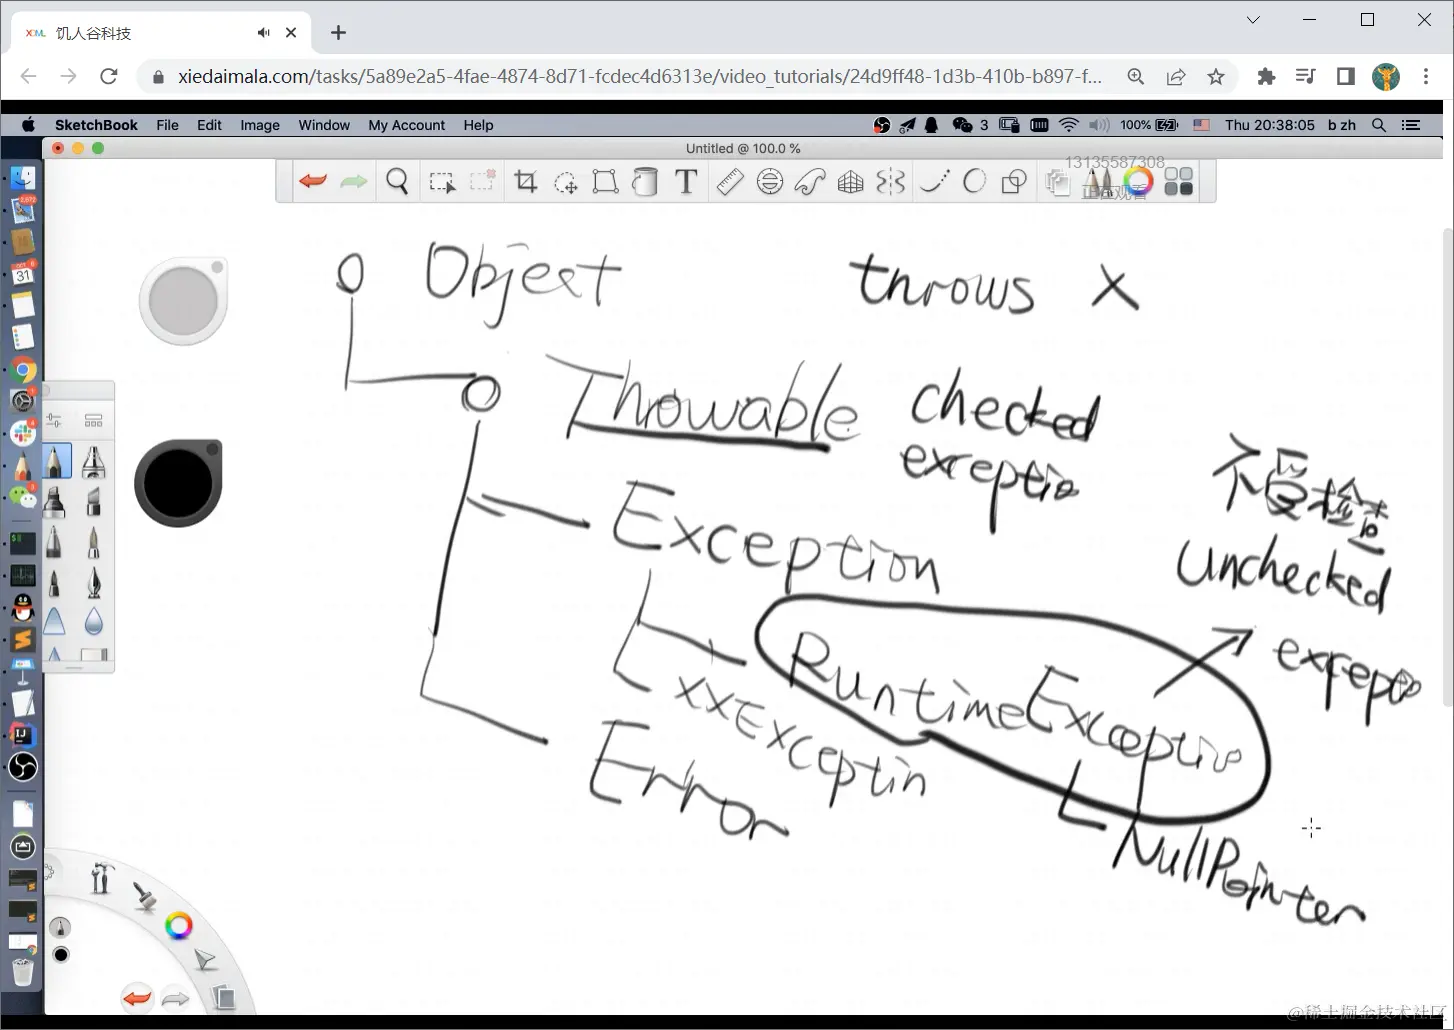 XDML 饥人谷科技
xiedaimala.com/tasks/5a89e2a5-4fae-4874-8d71-fcdec4d6313e/video_tutorials/24d9ff48-1d3b-410b-b897-f...
SketchBook File Edit Image Window My Account Help 3 100% Thu 20:38:05 b zh
Untitled @ 100.0 %
13135587308
正在观看
T
31
Object throws X
Throwable checked
exceptio
不受检查
Exception unchecked
exceptio
RuntimeExceptio
XXExceptin
Error
NullPointer
@稀土掘金技术社区